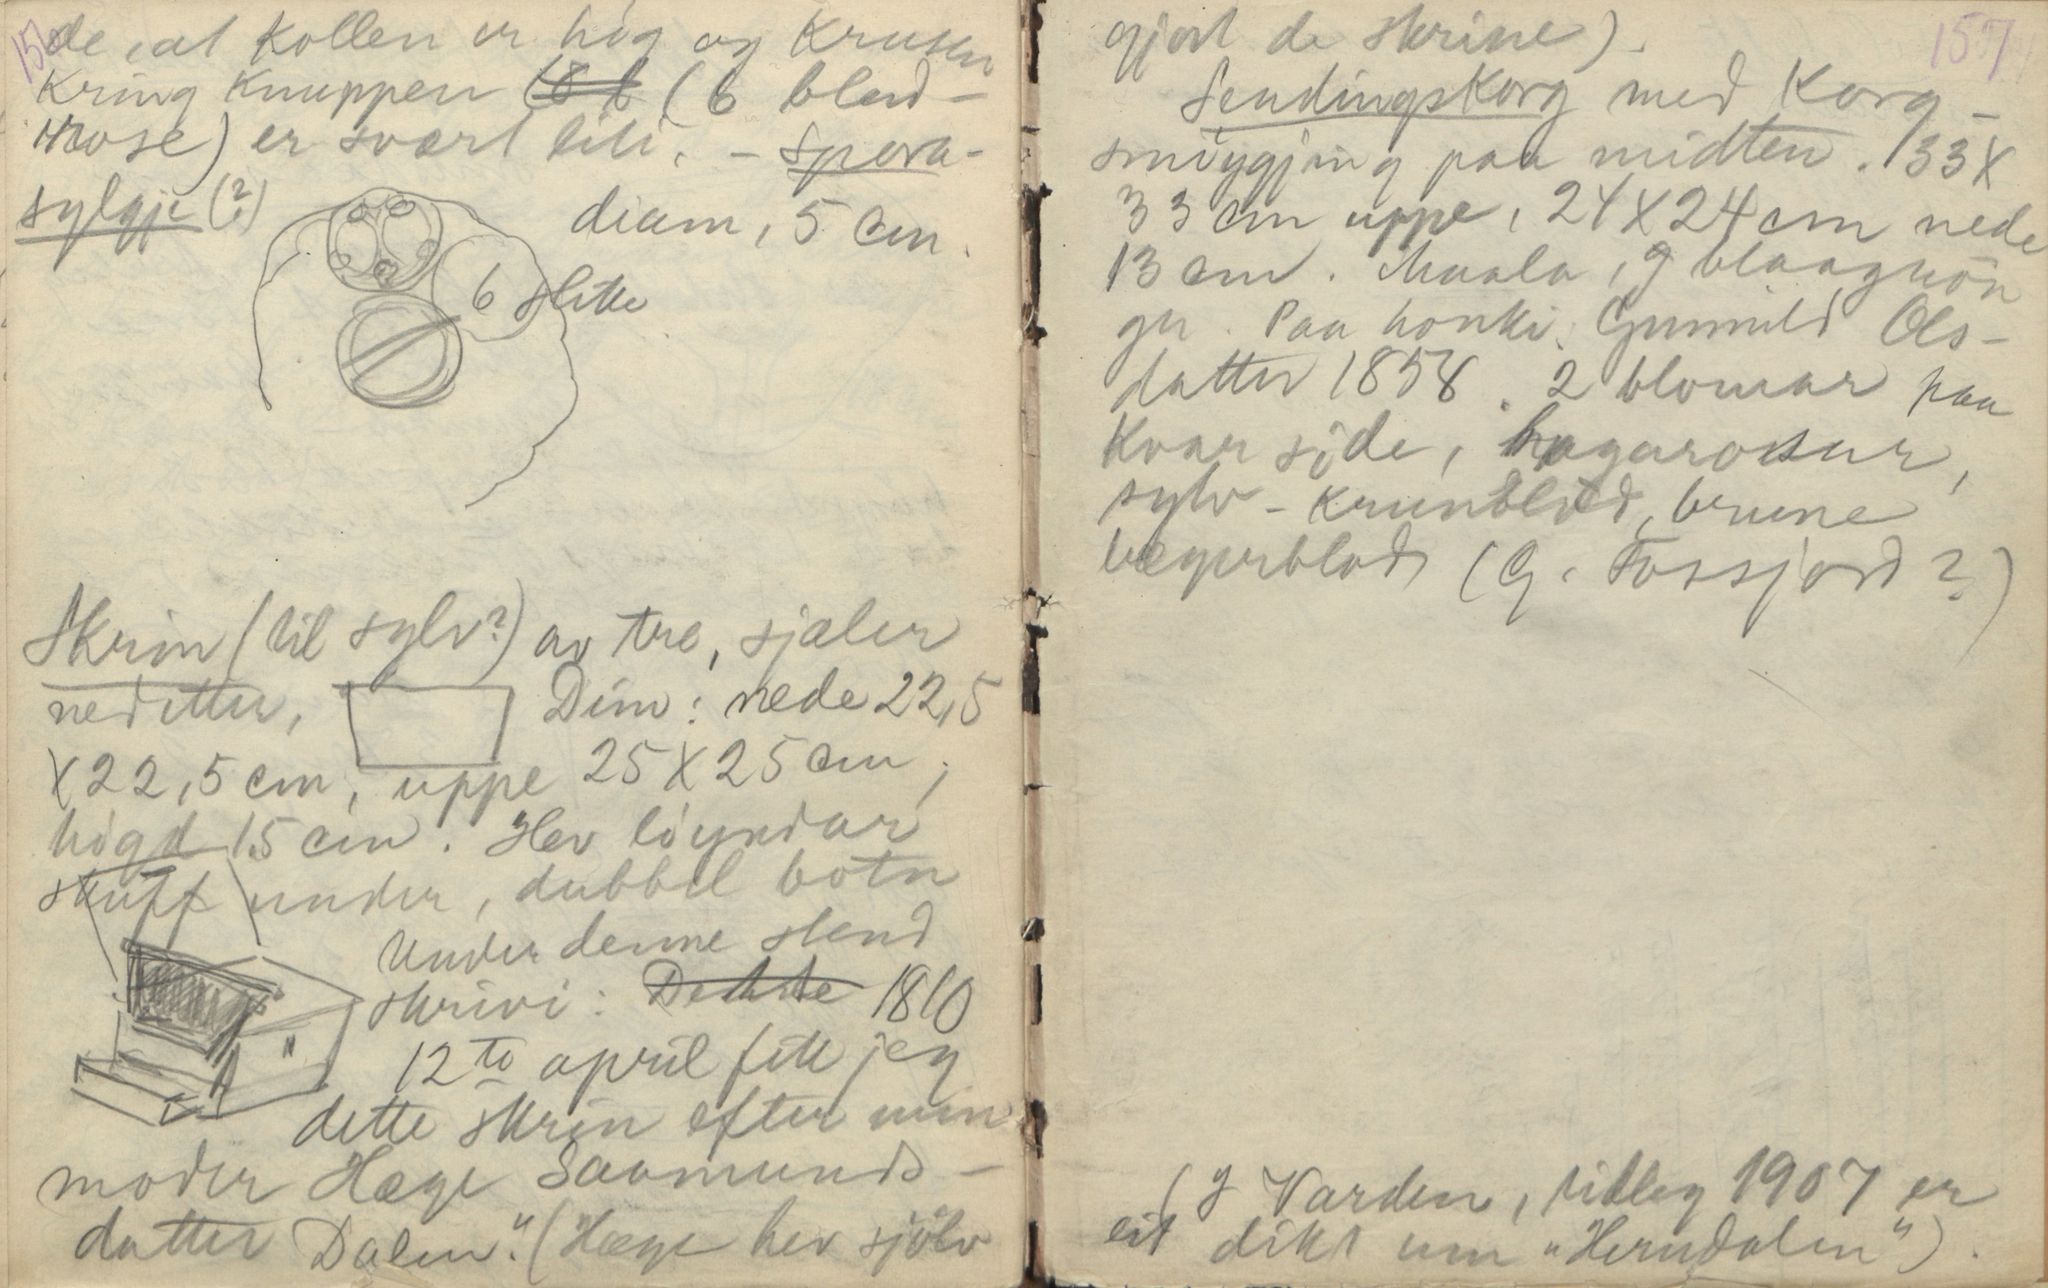 156
de, at kollen er høg og krusen
kring knuppen (6 blad-
rose) er svært liti. - Spera-
sylgje (?)
diam, 5 cm.
6 slike
Skrin (til sylv?) av tre, sjæler
nedetter,
Dim: nede 22,5
X 22,5 cm, uppe 25 X 25 cm,
høgd 15 cm. Hev løyndar
skuff under, dubbel botn
Under denne stend
skrivi: 1810
12to april fik jeg
dette skrin efter min
moder Hæge Saamunds-
datter Dalen". (Hæge hev sjølv
157
gjort de skrine).
Sendingskorg med Korg-
smøygjing paa midten. 33 X
33 cm uppe, 24 X 24 cm nede
13 cm. Maala, g blaagrøn
gr. Paa honki: Gunnild Ols-
datter 1858. 2 blomar paa
kvar side, hagarosur,
sylv-krunblad, brune
begerblad (G. Fossjord?)
(I Varden, tidleg 1907 er
eit dikt um "Herudalen").